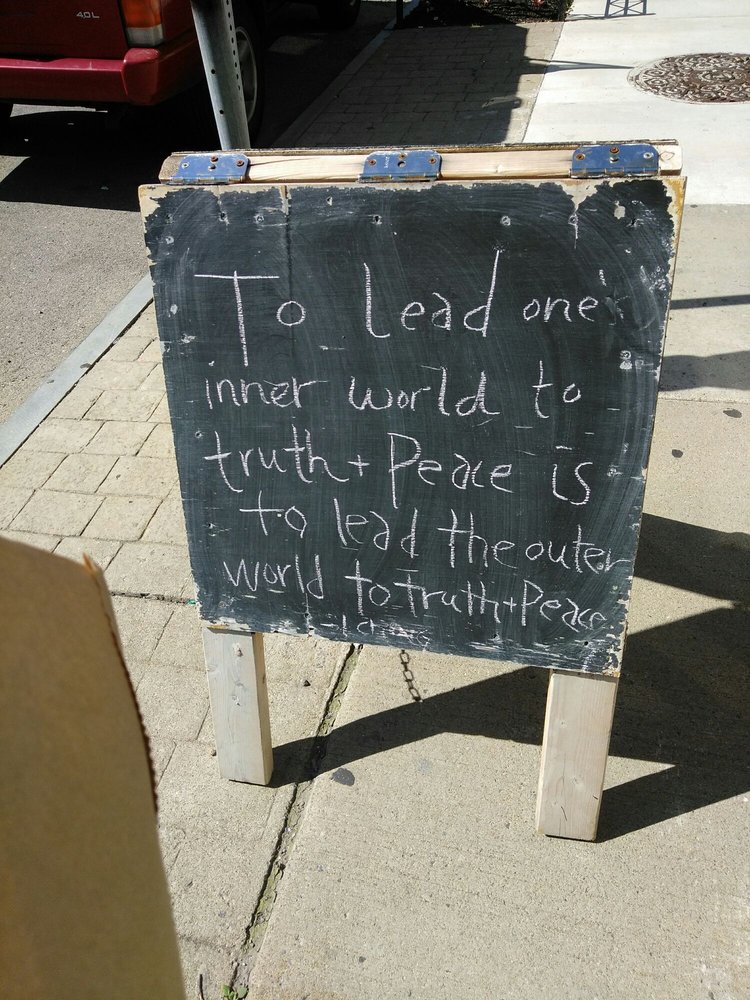 4.0L
To lead one's
inner world to
truth + Peace is
to lead the outer
world to truth + Peace